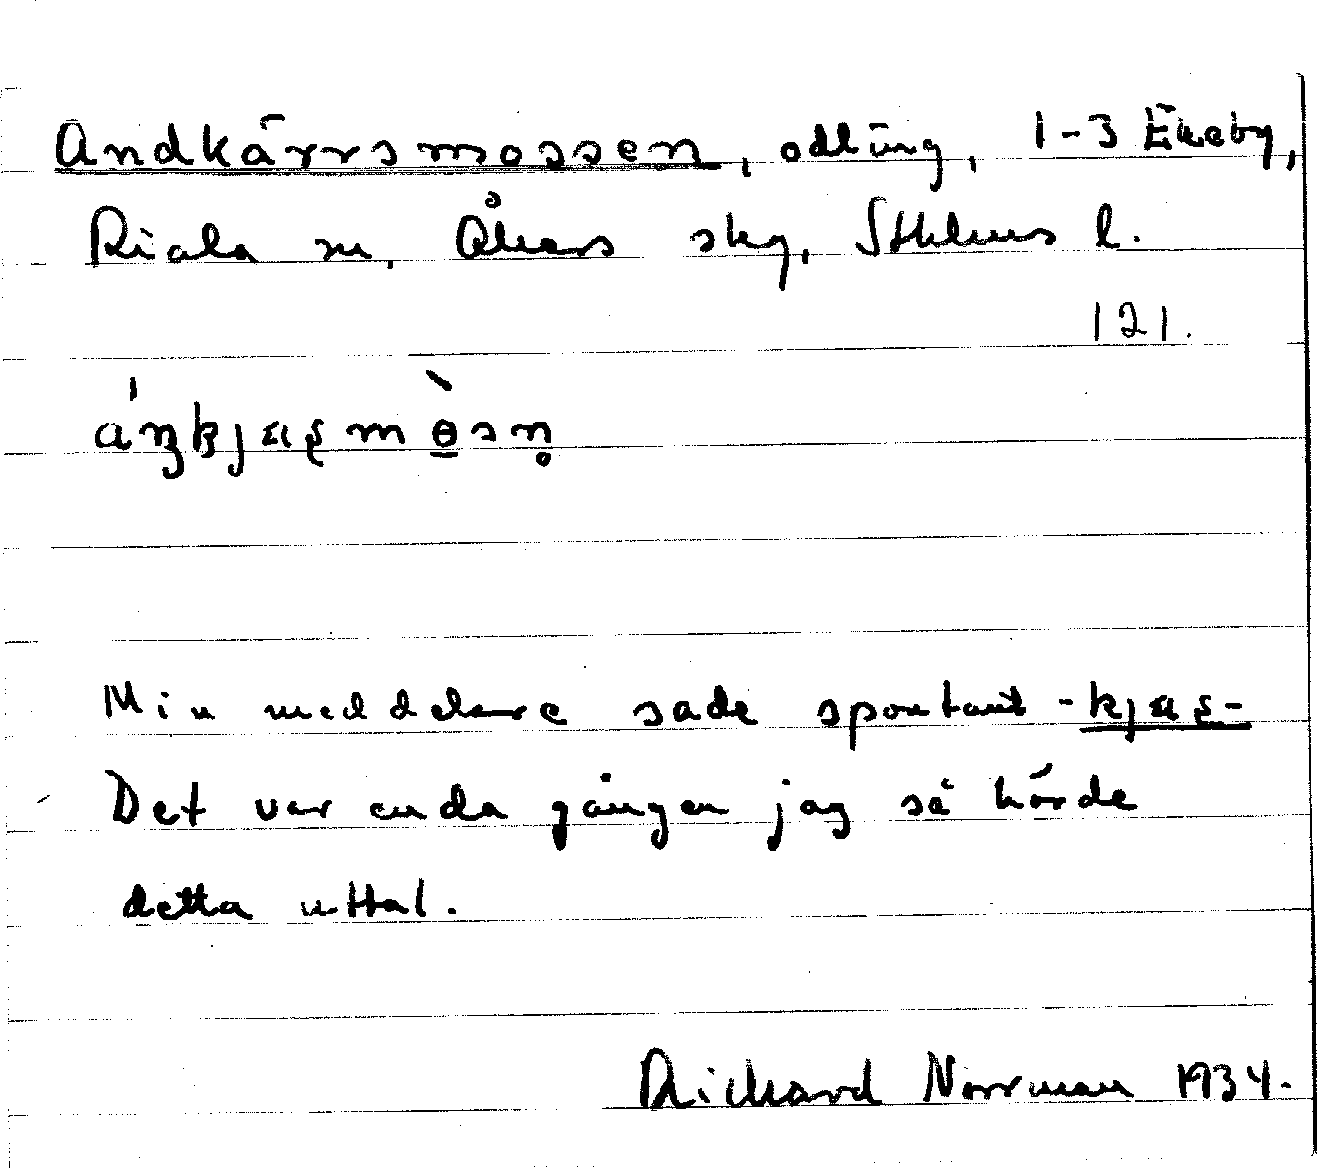 Andkärrsmossen, odling, 1-3 Ekeby,
Riala sn, Åkers skg, Sthlms l.
121.
Min meddelare sade spontant -kjæʂ-
Det var enda gången jag så hörde
detta uttal.
Richard Norrman 1934.